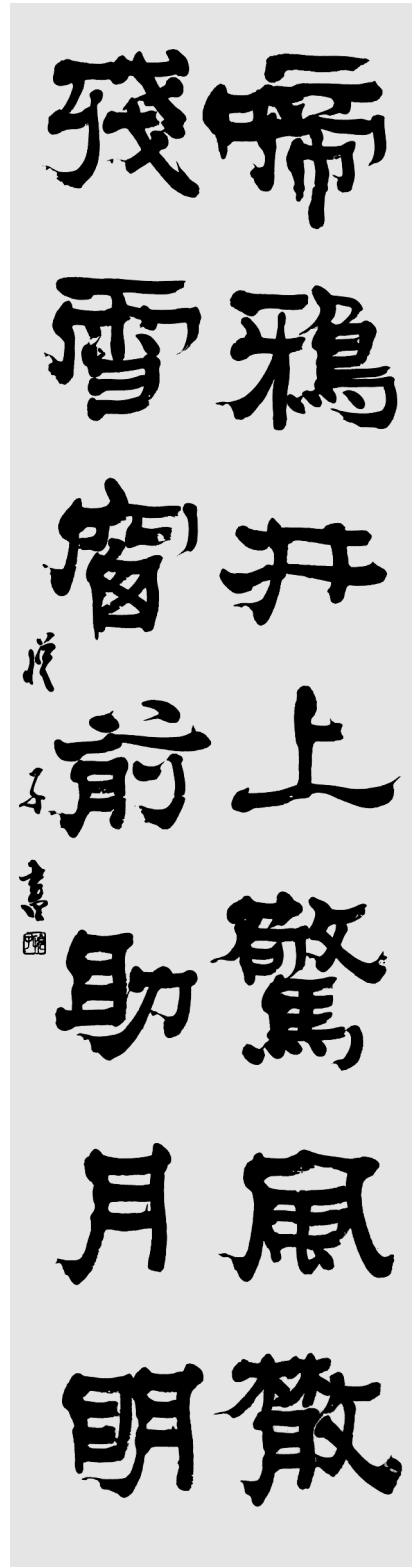 啼鴉井上驚風散
殘雪窗前助月明
子書